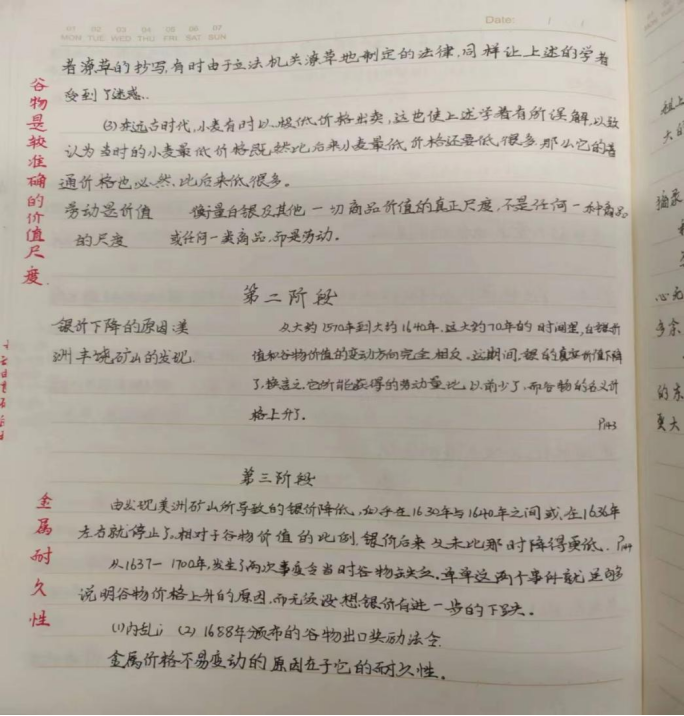 01 02 03 04 05 06 07
MON TUE WED THU FRI SAT SUN
Date: / /
着潦草的抄写,有时由于立法机关潦草地制定的法律,同样让上述的学者
受到了迷惑.
(3)在远古时代,小麦有时以极低价格出卖,这也使上述学者有所误解,以致
认为当时的小麦最低价格既然比后来小麦最低价格还要低很多.那么它的普
通价格也必然比后来低很多。
劳动是价值
的尺度
衡量白银及其他一切商品价值的真正尺度,不是任何一种商品
或任何一类商品,而是劳动.
谷物是较准确的价值尺度.
第二阶段
银价下降的原因:美
洲丰饶矿山的发现.
从大约1570年到大约1640年.这大约70年的时间里,白银价
值和谷物价值的变动方向完全相反.这期间,银的真实价值下降
了,换言之,它所能获得的劳动量比以前少了,而谷物的名义价
格上升了.
P143
第三阶段
由发现美洲矿山所导致的银价降低,似乎在1630年与1640年之间或在1636年
左右就停止了.相对于谷物价值的比例,银价后来又未比那时降得更低. P144
从1637-1700年,发生了两次事变令当时谷物缺乏,单单这两个事件就足够
说明谷物价格上升的原因,而无须设想银价有进一步的下跌。
(1)内乱; (2)1688年颁布的谷物出口奖励法令
金属价格不易变动的原因在于它的耐久性.
金属耐久性
心无
多余
的东
更大